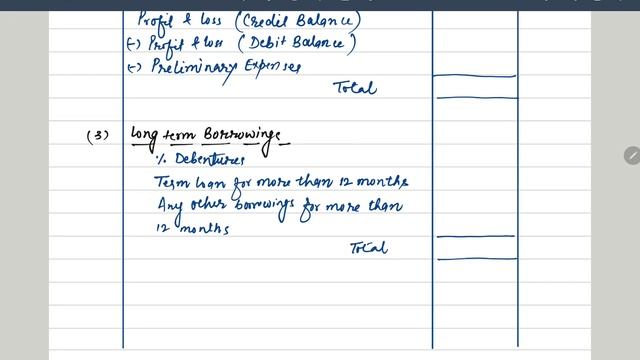 Profit & loss (Credit Balance)
(-) Profit & loss (Debit Balance)
(-) Preliminary Expenses
Total
(3) Long term Borrowings
% Debentures
Term loan for more than 12 months
Any other borrowings for more than
12 months
Total